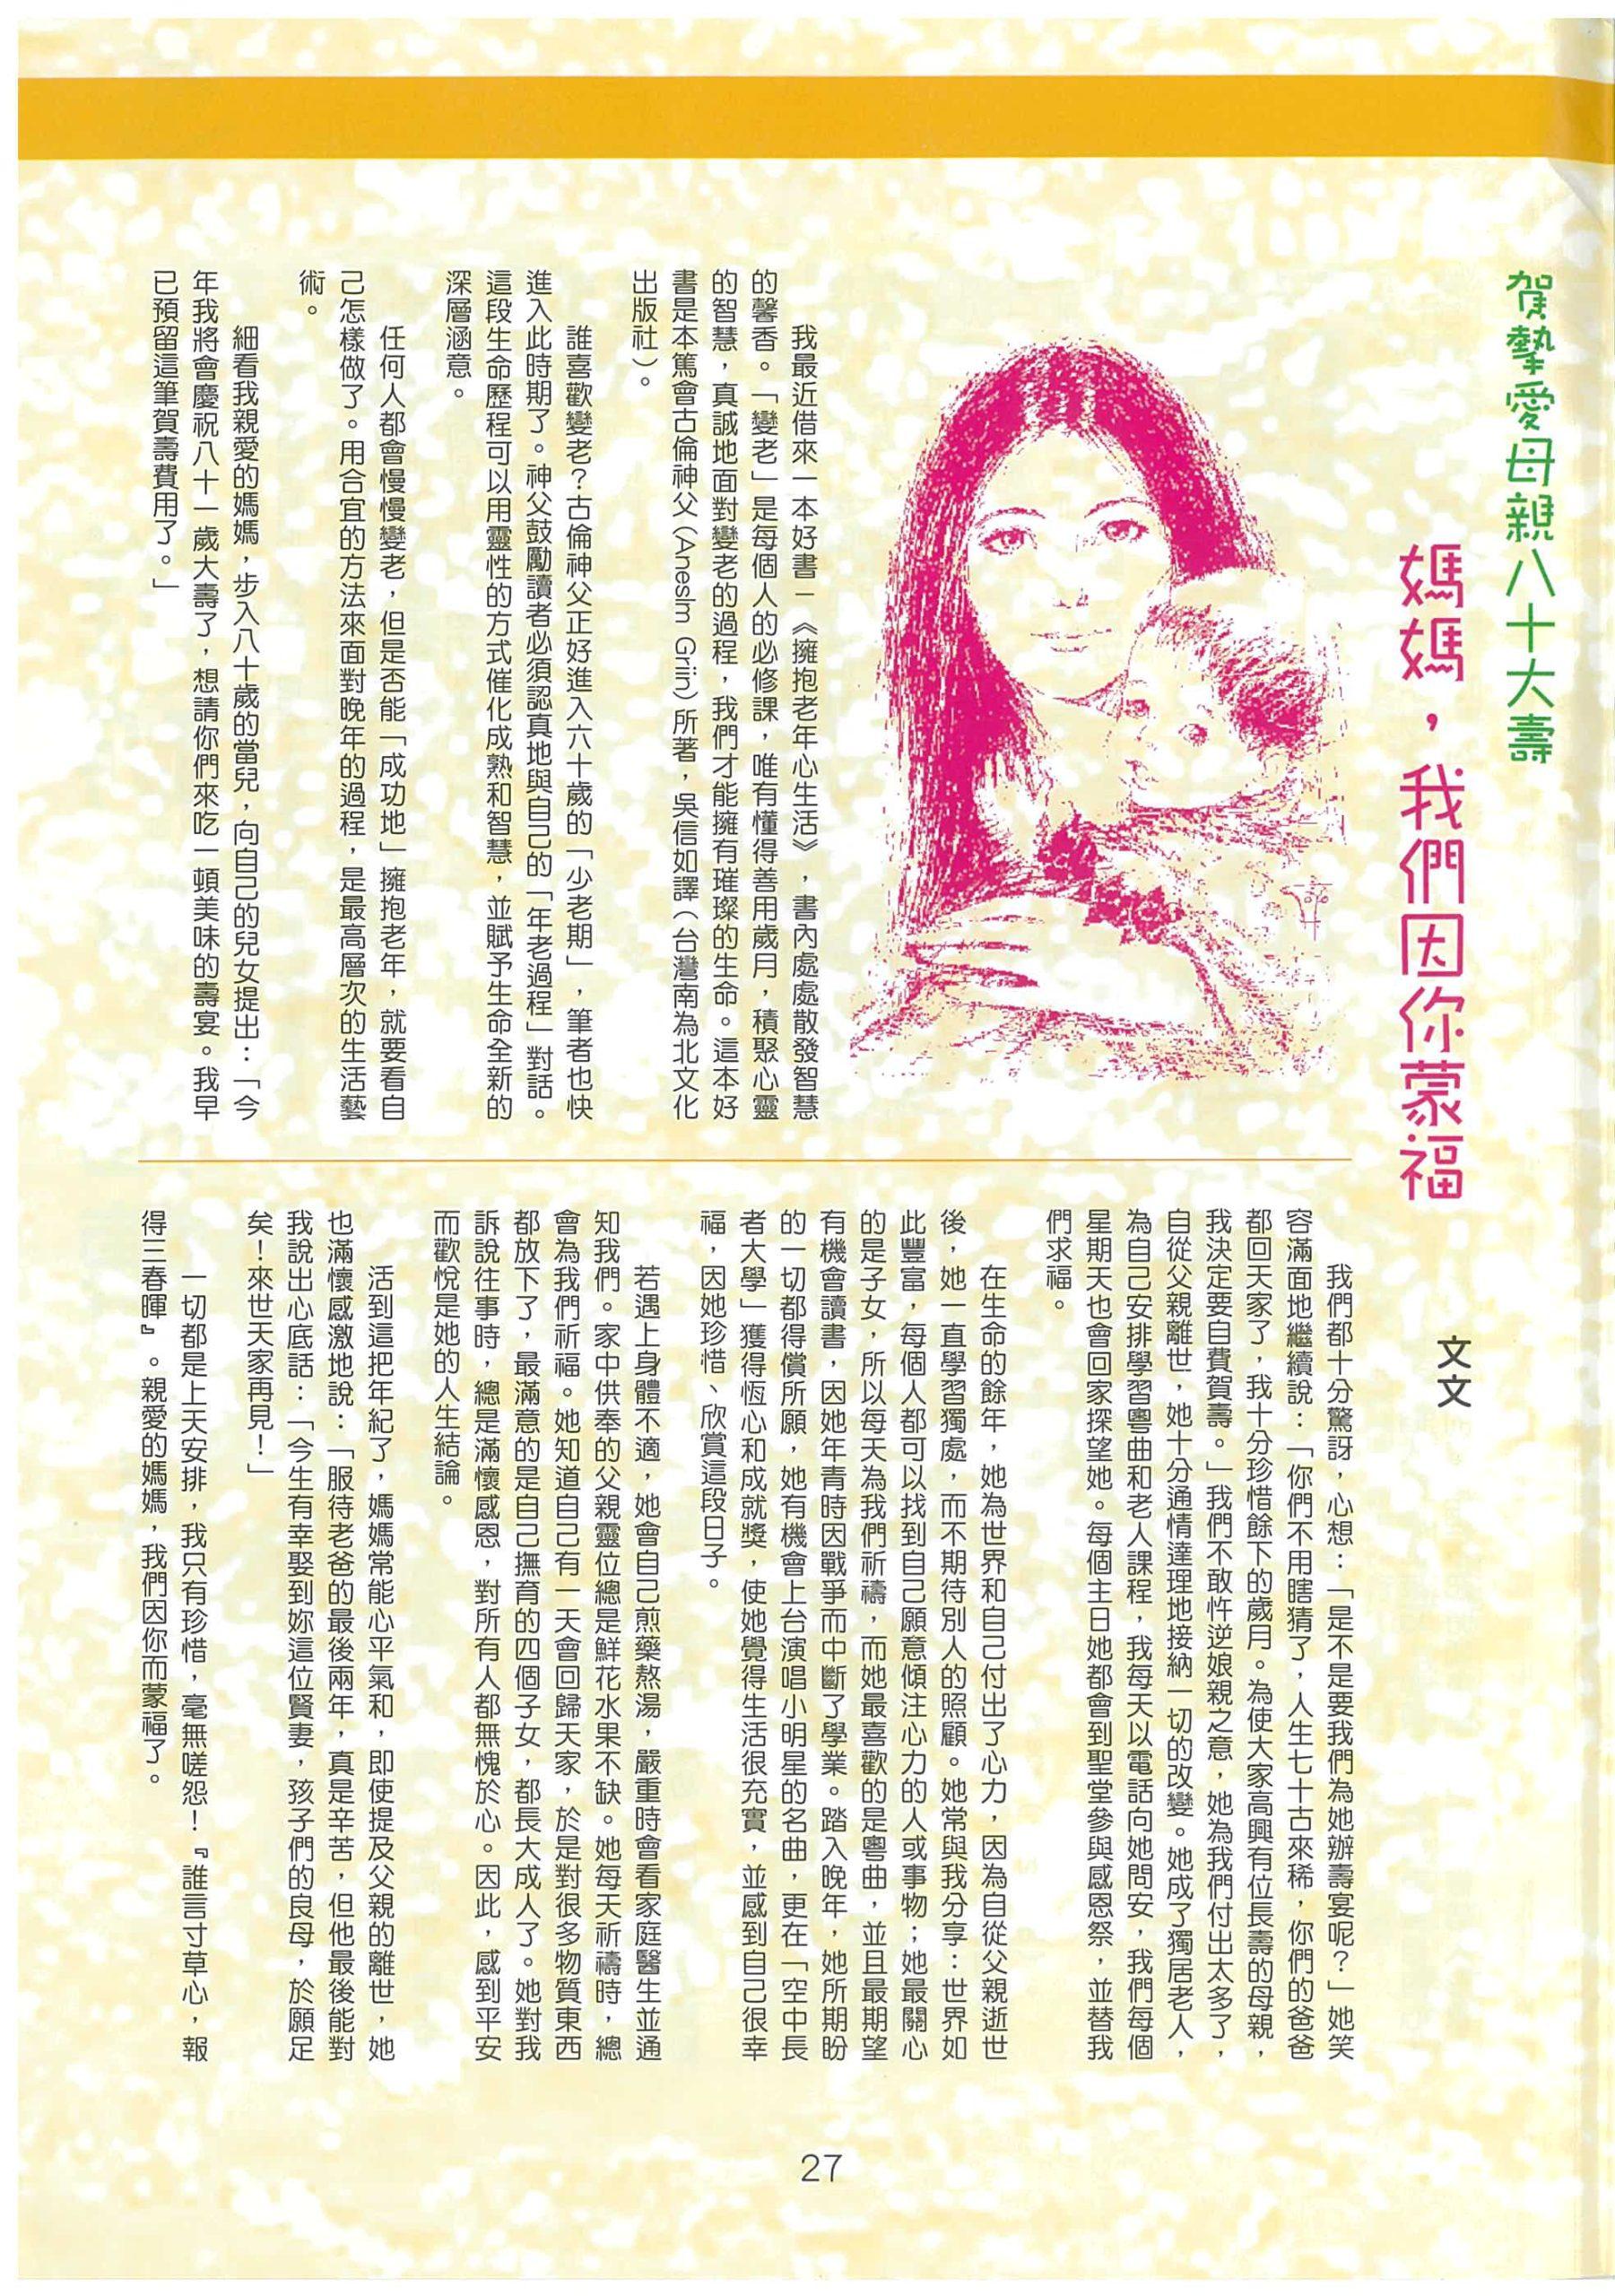 賀摯愛母親八十大壽
媽媽，我們因你蒙福
文文
我最近借來一本好書－《擁抱老年心生活》，書內處處散發智慧
的馨香。「變老」是每個人的必修課，唯有懂得善用歲月，積聚心靈
的智慧，真誠地面對變老的過程，我們才能擁有璀璨的生命。這本好
書是本篤會古倫神父(Aneslm Griin)所著，吳信如譯（台灣南為北文化
出版社）。
誰喜歡變老？古倫神父正好進入六十歲的「少老期」，筆者也快
進入此時期了。神父鼓勵讀者必須認真地與自己的「年老過程」對話。
這段生命歷程可以用靈性的方式催化成熟和智慧，並賦予生命全新的
深層涵意。
任何人都會慢慢變老，但是否能「成功地」擁抱老年，就要看自
己怎樣做了。用合宜的方法來面對晚年的過程，是最高層次的生活藝
術。
細看我親愛的媽媽，步入八十歲的當兒，向自己的兒女提出：「今
年我將會慶祝八十一歲大壽了，想請你們來吃一頓美味的壽宴。我早
已預留這筆賀壽費用了。」
我們都十分驚訝，心想：「是不是要我們為她辦壽宴呢？」她笑
容滿面地繼續說：「你們不用瞎猜了，人生七十古來稀，你們的爸爸
都回天家了，我十分珍惜餘下的歲月。為使大家高興有位長壽的母親，
我決定要自費賀壽。」我們不敢忤逆娘親之意，她為我們付出太多了，
自從父親離世，她十分通情達理地接納一切的改變。她成了獨居老人，
為自己安排學習粵曲和老人課程，我每天以電話向她問安，我們每個
星期天也會回家探望她。每個主日她都會到聖堂參與感恩祭，並替我
們求福。
在生命的餘年，她為世界和自己付出了心力，因為自從父親逝世
後，她一直學習獨處，而不期待別人的照顧。她常與我分享：世界如
此豐富，每個人都可以找到自己願意傾注心力的人或事物；她最關心
的是子女，所以每天為我們祈禱，而她最喜歡的是粵曲，並且最期望
有機會讀書，因她年青時因戰爭而中斷了學業。踏入晚年，她所期盼
的一切都得償所願，她有機會上台演唱小明星的名曲，更在「空中長
者大學」獲得恆心和成就獎，使她覺得生活很充實，並感到自己很幸
福，因她珍惜、欣賞這段日子。
若遇上身體不適，她會自己煎藥熬湯，嚴重時會看家庭醫生並通
知我們。家中供奉的父親靈位總是鮮花水果不缺。她每天祈禱時，總
會為我們祈福。她知道自己有一天會回歸天家，於是對很多物質東西
都放下了，最滿意的是自己撫育的四個子女，都長大成人了。她對我
訴說往事時，總是滿懷感恩，對所有人都無愧於心。因此，感到平安
而歡悅是她的人生結論。
活到這把年紀了，媽媽常能心平氣和，即使提及父親的離世，她
也滿懷感激地說：「服待老爸的最後兩年，真是辛苦，但他最後能對
我說出心底話：「今生有幸娶到妳這位賢妻，孩子們的良母，於願足
矣！來世天家再見！」
一切都是上天安排，我只有珍惜，毫無嗟怨！『誰言寸草心，報
得三春暉』。親愛的媽媽，我們因你而蒙福了。
27